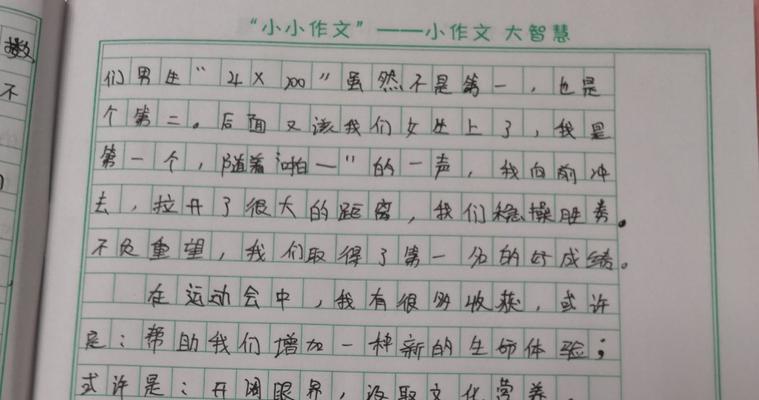 “小小作文”——小作文 大智慧
们男生“4×100”虽然不是第一，也是
个第二。后面又该我们女生上了，我是
第一个，随着“啪—”的一声，我向前冲
去，拉开了很大的距离，我们稳操胜券。
不负重望，我们取得了第一名的好成绩。
在运动会中，我有很多收获，或许
是：帮助我们增加一种新的生命体验；
或许是：开阔眼界，汲取文化营养，
数
不